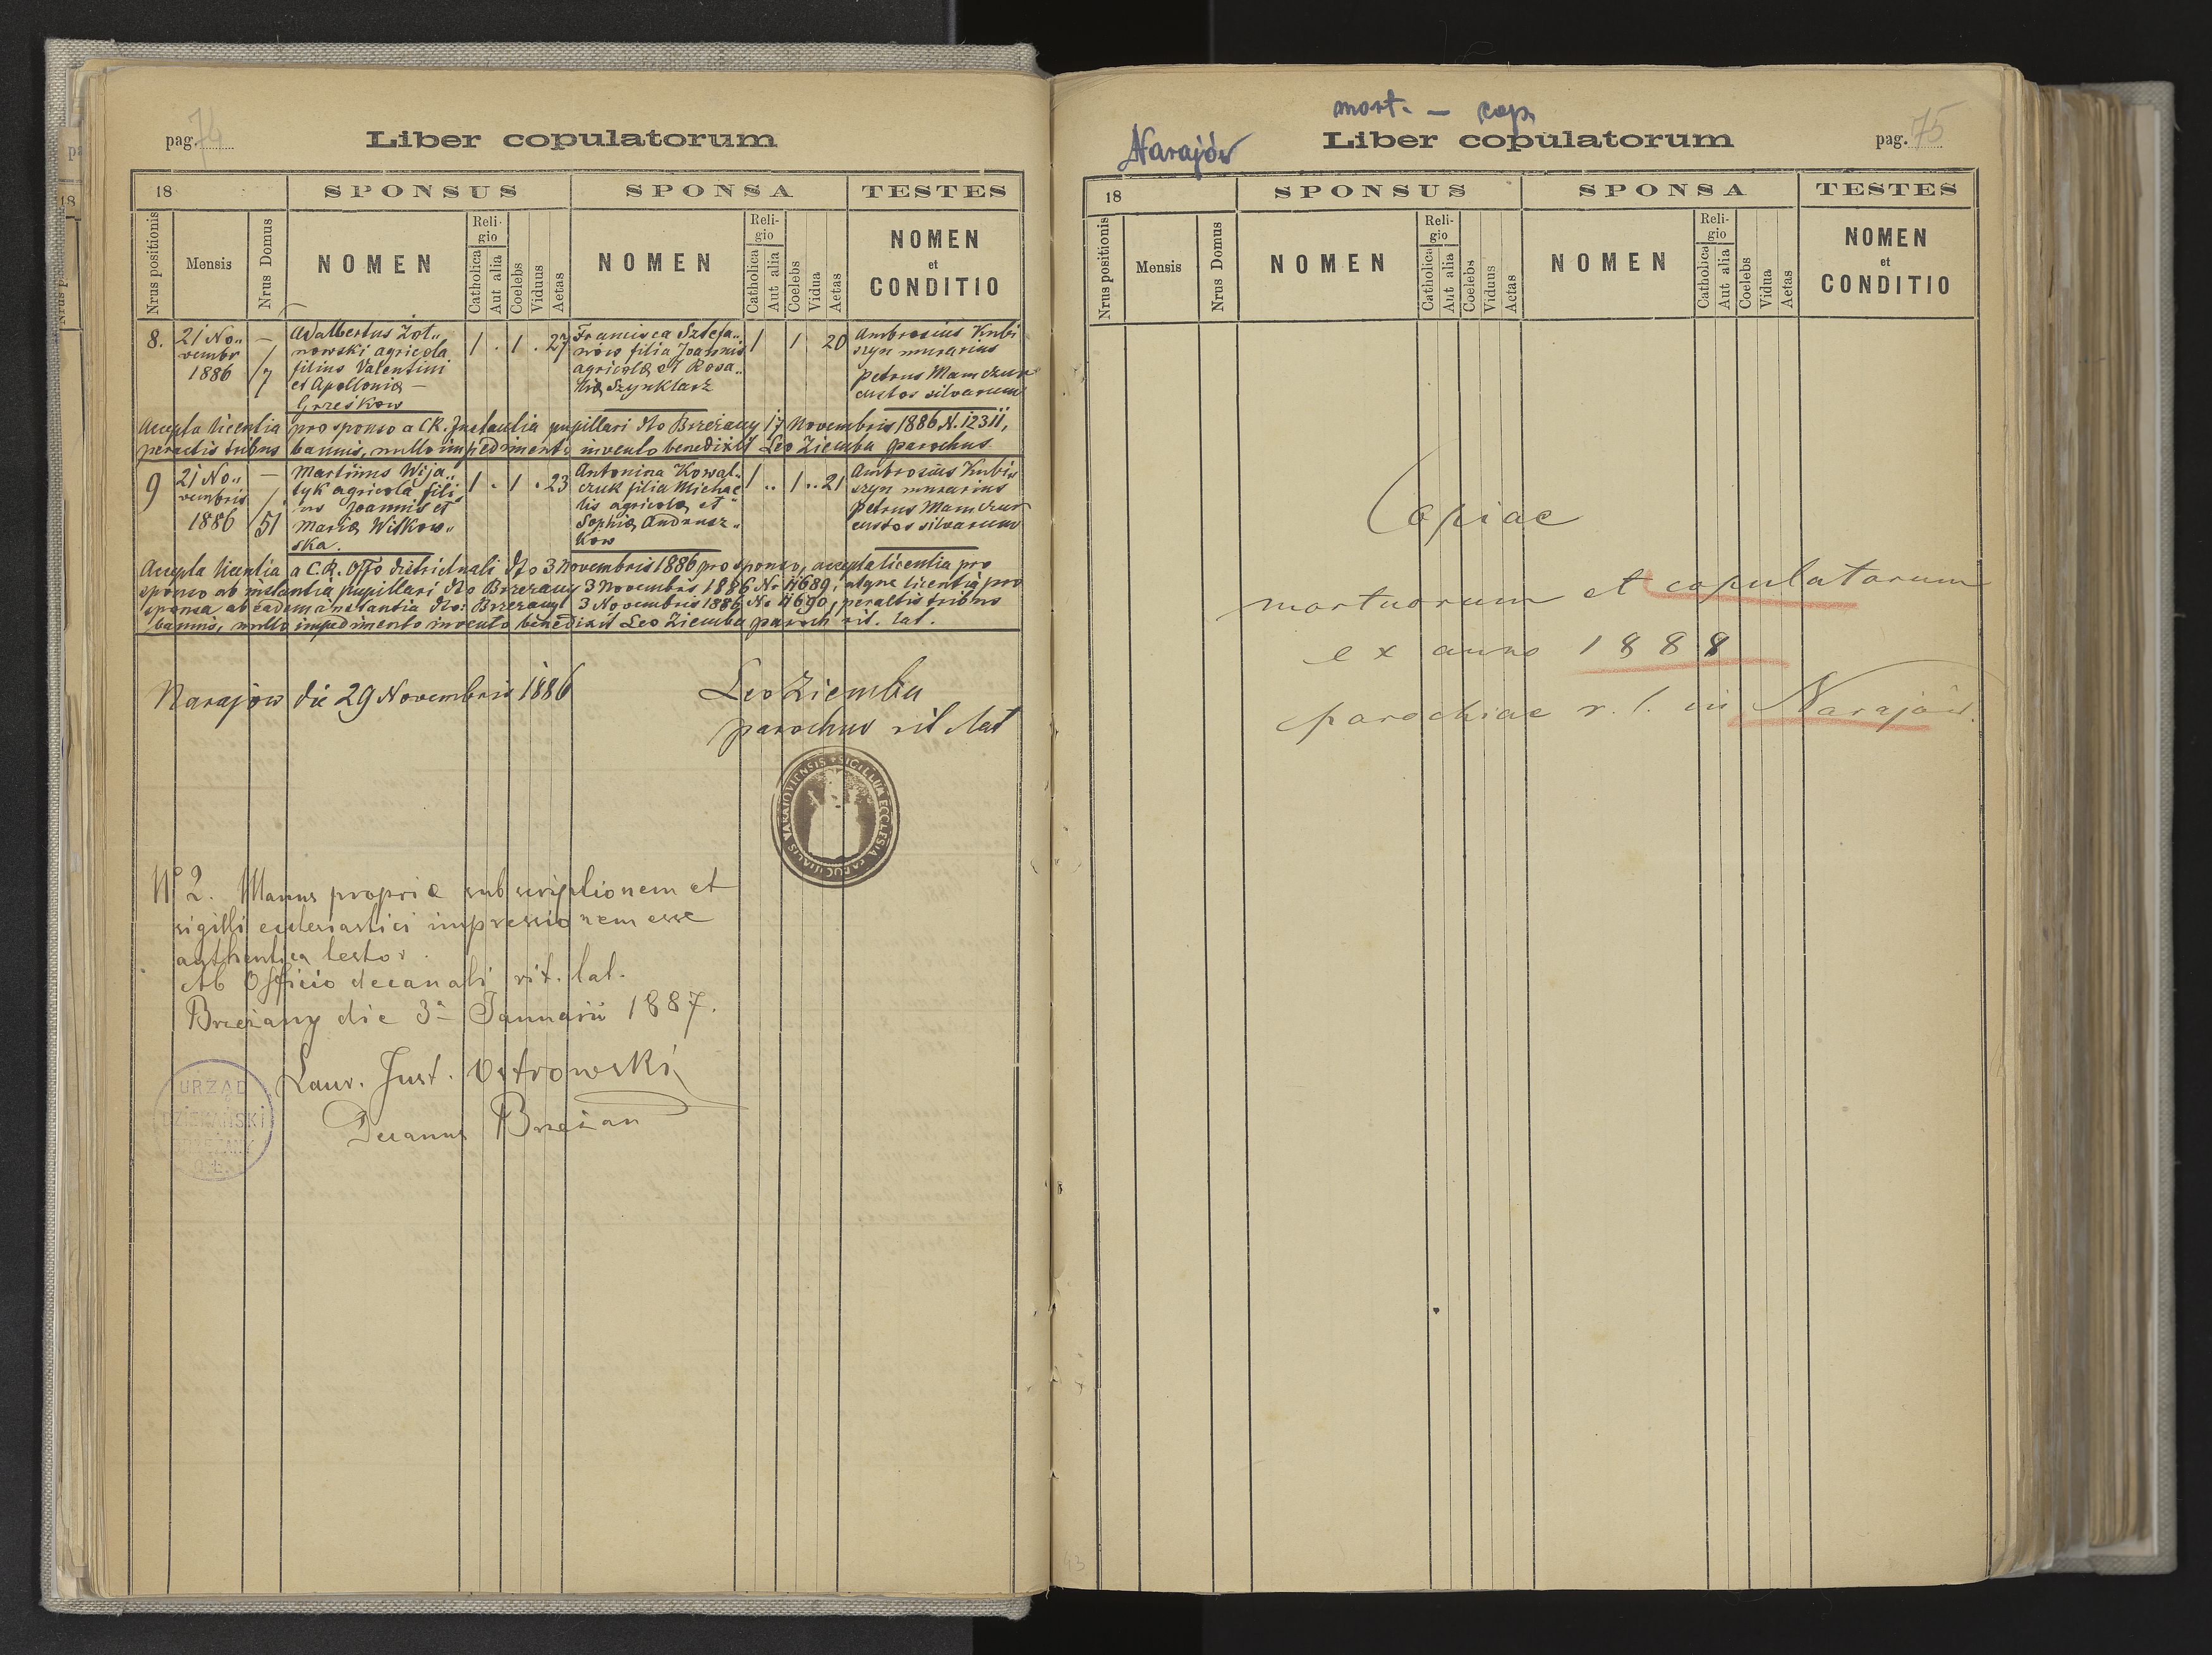 pag. 74
Liber copulatorum
18
SPONSUS
SPONSA
TESTES
Nrus positionis
Mensis
Nrus Domus
NOMEN
Religio
Catholica
Aut alia
Coelebs
Viduus
Aetas
NOMEN
Religio
Catholica
Aut alia
Coelebs
Vidua
Aetas
NOMEN
et
CONDITIO
8. 21 No„
vembr
1886
— / 7
Adalbertus Zot„
nowski agricola
filius Valentini
et Apolloniæ —
Grześkow
1 . 1 . 27
Francisca Stefa„
now filia Joannis
agricolæ et Rosa„
liæ Szynklarz
1 1 20
Ambrosius Kubi
szyn murarius
Petrus Mamczur
custos silvarum
Accepta licentia pro sponso a C.R. Instantia pupillari dto Brzeżany 17 Novembris 1886 N. 12311,
peractis tribus bannis, nullo impedimento invento benedixit Leo Ziemba parochus
9 21 No„
vembris
1886
— / 51
Martinus Wija„
tyk agricola fili„
us Joannis et
Mariæ Witkow„
ska.
1 . 1 . 23
Antonina Kowal„
czuk filia Michae
lis agricolæ et
Sophiæ Andrusz„
kow
1 .. 1 .. 21
Ambrosius Kubi„
szyn murarius
Petrus Mamczur
custos silvarum
Accepta licentia a C.R. Offo districtuali dto 3 Novembris 1886 pro sponso, accepta licentia pro
sponso ab instantia pupillari dto Brzeżany 3 Novembris 1886 No 11689, atque licentia pro
sponsa ab eadem instantia dto: Brzeżany 3 Novembris 1886 No 11690, peractis tribus
bannis, nullo impedimento invento benedixit Leo Ziemba paroch rit. lat.
Narajow die 29 Novembris 1886
Leo Ziemba
parochus rit lat
SIGILLUM ECCLESIA PAROCHIALIS NARAIOVIENSIS
No 2. Manus propriæ subscriptionem et
sigilli ecclesiastici impressionem esse
authentica testor.
Ab Officio decanali rit. lat.
Brzeżany die 3a Januarii 1887.
Laur. Just. Ostrowski
Decanus Brzeżan
URZĄD
DZIEKAŃSKI
BRZEŻANY
O.Ł.
mort. — cop.
Narajów
Liber copulatorum
pag. 75
18
SPONSUS
SPONSA
TESTES
Nrus positionis
Mensis
Nrus Domus
NOMEN
Religio
Catholica
Aut alia
Coelebs
Viduus
Aetas
NOMEN
Religio
Catholica
Aut alia
Coelebs
Vidua
Aetas
NOMEN
et
CONDITIO
Copiae
mortuorum et copulatorum
ex anno 1888
parochiae r. l. in Narajów.
43